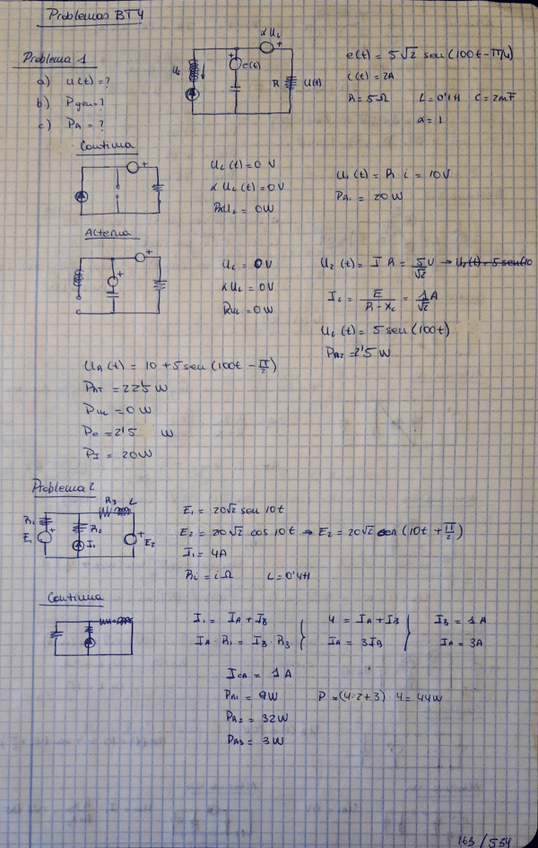 Problemas BT4
Problema 1
a) u(t) = ?
b) Pgen = ?
c) PR = ?
αUL
UL
e(t)
R
U(t)
e(t) = 5√2 sen(100t - π/4)
i(t) = 2A
R = 5Ω L = 0'1H C = 2mF
α = 1
Continua
UL(t) = 0 V
αUL(t) = 0V
PαUL = 0W
U1(t) = R i = 10V
PR1 = 20W
Alterna
UL = 0V
αUL = 0V
PUL = 0W
U2(t) = I R = 5/√2 V →
IL = E / R - Xc = 1/√2 A
UL(t) = 5 sen(100t)
PR2 = 2'5 W
UR(t) = 10 + 5 sen(100t - π/2)
PRT = 22'5 W
PUL = 0 W
Pe = 2'5 W
PI = 20W
Problema 2
R3 L
R1
R2
E1
I1
E2
E1 = 20√2 sen 10t
E2 = 20√2 cos 10t → E2 = 20√2 sen(10t + π/2)
I1 = 4A
Ri = i Ω L = 0'4H
Continua
I1 = IA + IB
IA · R1 = IB · R3
4 = IA + IB
IA = 3IB
IB = 1A
IA = 3A
ICA = 1 A
PR1 = 9W
PR2 = 32W
PR3 = 3W
P = (4·2+3) 4 = 44W
163/554